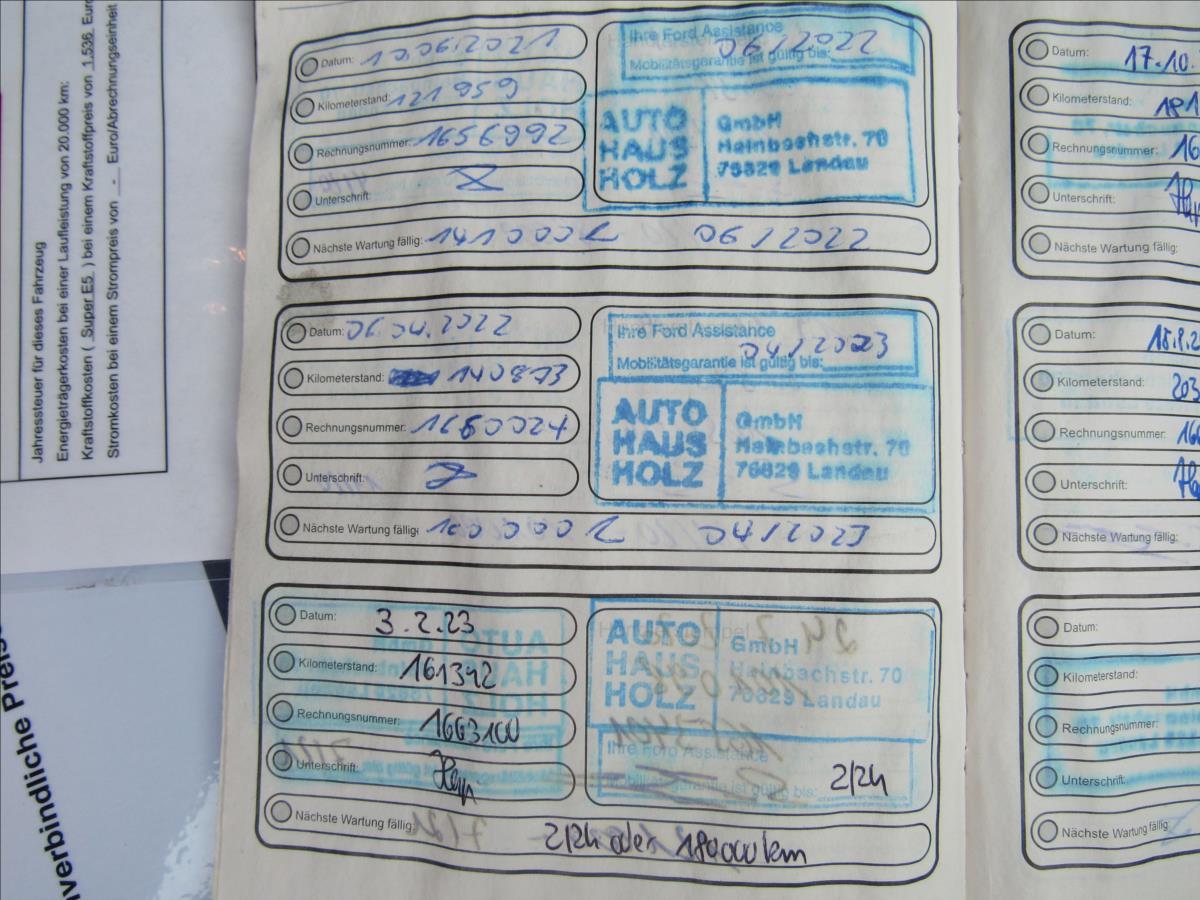 Jahressteuer für dieses Fahrzeug
Energieträgerkosten bei einer Laufleistung von 20.000 km:
Kraftstoffkosten ( Super E5. ) bei einem Kraftstoffpreis von 1.536 Euro
Stromkosten bei einem Strompreis von - Euro/Abrechnungseinheit
verbindliche Preis
Datum: 06.2021
Kilometerstand: 121959
Rechnungsnummer: 1656992
Unterschrift:
Nächste Wartung fällig: 141000 06/2022
Ihre Ford Assistance
06/2022
Mobilitätsgarantie ist gültig bis:
AUTO
HAUS
HOLZ
GmbH
Hainbachstr. 70
76829 Landau
Datum: 06.04.2022
Kilometerstand: 140873
Rechnungsnummer:
Unterschrift:
Nächste Wartung fällig: 04/2023
Ihre Ford Assistance
04/2023
Mobilitätsgarantie ist gültig bis:
AUTO
HAUS
HOLZ
GmbH
Hainbachstr. 70
76829 Landau
Datum: 3.2.23
Kilometerstand: 161342
Rechnungsnummer: 1663100
Unterschrift:
Nächste Wartung fällig: 2/24 oder 180000km
AUTO
HAUS
HOLZ
GmbH
Hainbachstr. 70
76829 Landau
Ihre Ford Assistance
Mobilitätsgarantie ist gültig bis: 2/24
Datum: 17.10.
Kilometerstand: 181
Rechnungsnummer: 16
Unterschrift:
Nächste Wartung fällig:
Datum: 18.9.2
Kilometerstand: 203
Rechnungsnummer: 166
Unterschrift:
Nächste Wartung fällig:
Datum:
Kilometerstand:
Rechnungsnummer:
Unterschrift:
Nächste Wartung fällig: